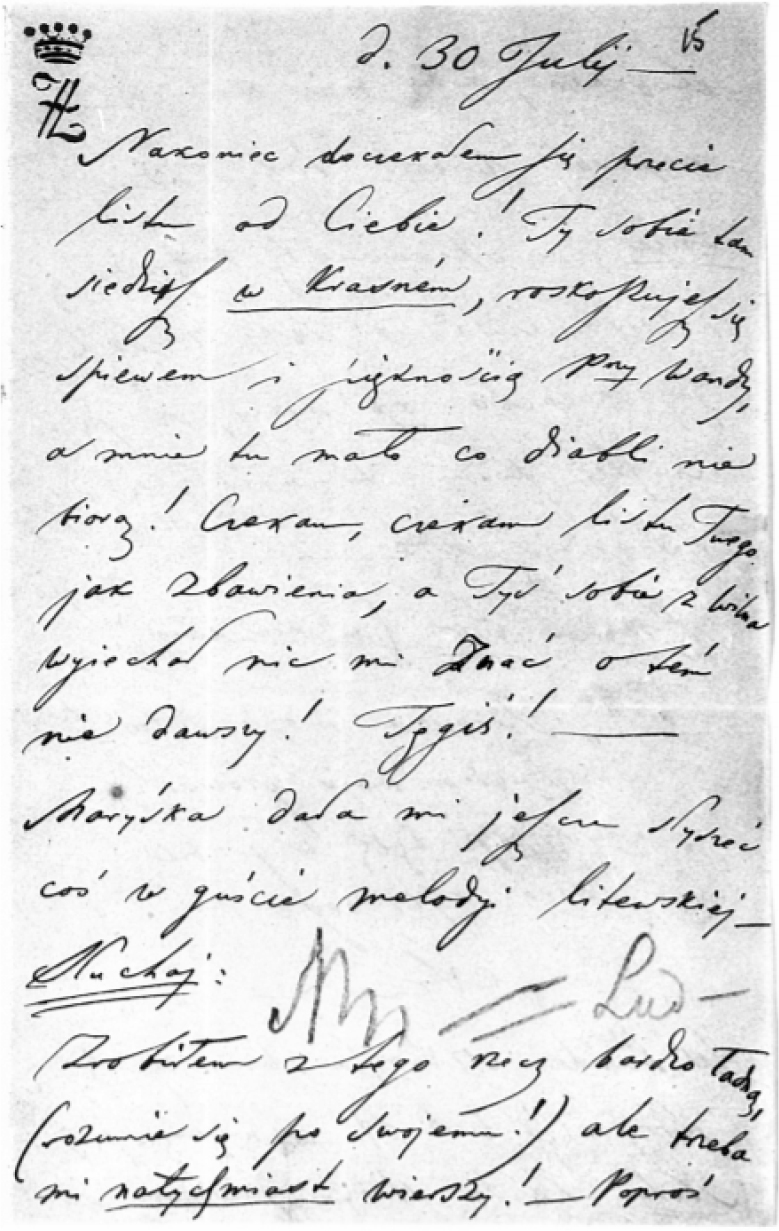 d. 30 Julij — 15
Nakoniec doczekałem się przecie
listu od Ciebie! Ty sobie tam
siedzisz w Krasném, roskoszujesz się
spiewem i pięknością Pny Wandy,
a mnie tu mało co diabli nie
biorą! Czekam, czekam listu Twego
jak zbawienia, a Tyś sobie z Wilna
wyjechał nic mi znać o tém
nie dawszy! Tęgiś! —
Maryśka dała mi jeszcze słyszeć
coś w guście melodyi litewskiej —
Słuchaj:
Lud —
Zrobiłem z tego rzecz bardzo ładną,
(rozumie się po swojemu!) ale trzeba
mi natychmiast wierszy! — Poproś